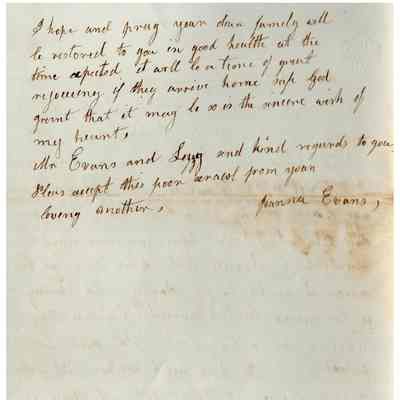 I hope and pray youn dear family will
be restored to you in good health at the
time expected it will be a time of great
rejoiceing if they arrive home safe god
grant that it may be so is the sincere wish of
my heart,
Mr Evans and send kind regards to you
Pleas accept this poor from youn
loving Mother, Evans,